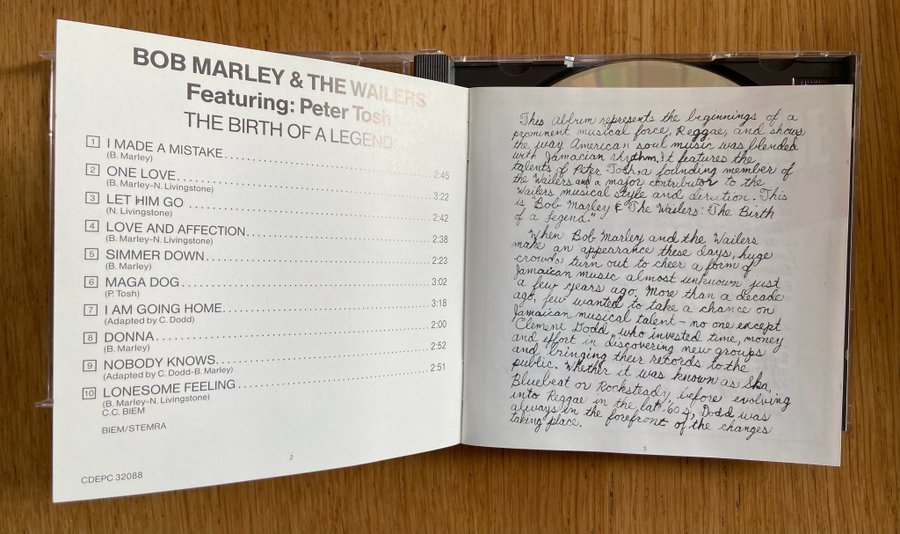 BOB MARLEY & THE WAILERS
Featuring: Peter Tosh
THE BIRTH OF A LEGEND
1 I MADE A MISTAKE 2:45
(B. Marley)
2 ONE LOVE 3:22
(B. Marley-N. Livingstone)
3 LET HIM GO 2:42
(N. Livingstone)
4 LOVE AND AFFECTION 2:38
(B. Marley-N. Livingstone)
5 SIMMER DOWN 2:23
(B. Marley)
6 MAGA DOG 3:02
(P. Tosh)
7 I AM GOING HOME 3:18
(Adapted by C. Dodd)
8 DONNA 2:00
(B. Marley)
9 NOBODY KNOWS 2:52
(Adapted by C. Dodd-B. Marley)
10 LONESOME FEELING 2:51
(B. Marley-N. Livingstone)
C.C. BIEM
BIEM/STEMRA
2
CDEPC 32088
This Album represents the beginnings of a
prominent musical force, Reggae, and shows
the way American soul music was blended
with Jamacian rhythm, it features the
talents of Peter Tosh, a founding member of
the Wailers and a major contributor to the
Wailers musical style and direction. This
is "Bob Marley & The Wailers: The Birth
of a Legend."
When Bob Marley and the Wailers
make an appearance these days, huge
crowds turn out to cheer a form of
Jamaican music almost unknown just
a few years ago. More than a decade
ago, few wanted to take a chance on
Jamaican musical talent – no one except
Clement Dodd, who invested time, money
and effort in discovering new groups
and bringing their records to the
public. Whether it was known as Ska,
Bluebeat or Rocksteady before evolving
into Reggae in the late '60's, Dodd was
always in the forefront of the changes
taking place.
3